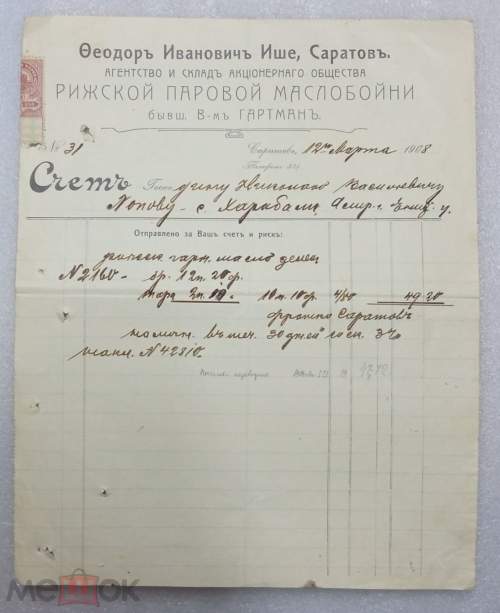 Ѳеодоръ Ивановичъ Ише, Саратовъ.
АГЕНТСТВО И СКЛАДЪ АКЦІОНЕРНАГО ОБЩЕСТВА
РИЖСКОЙ ПАРОВОЙ МАСЛОБОЙНИ
бывш. В-мъ ГАРТМАНЪ.
№ 31
Саратовъ, 12го Марта 1908
Телефонъ
Счетъ Госп. дину Николаю Васильевичу
Попову - с. Харабали, Астр. г. Енот. у.
Отправлено за Вашъ счетъ и рискъ:
гарн. масло
№ 2160 - бр. 12п. 20ф.
тара 2п. 10ф. 10п. 10ф. 4/80 49.20
франко Саратовъ
30 дней 3%
№ 42310.
МЕШОК